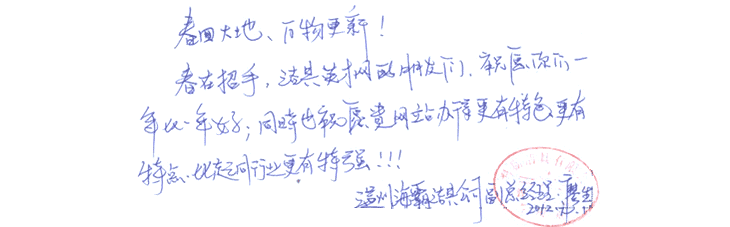 春回大地、万物更新!
春在招手,洁具英才网的朋友们,祝愿你们一
年比一年好;同时也祝愿贵网站办得更有特色更有
特点.比起同行业更有特强!!!
温州海霸洁具公司副总经理:廖生
2012.